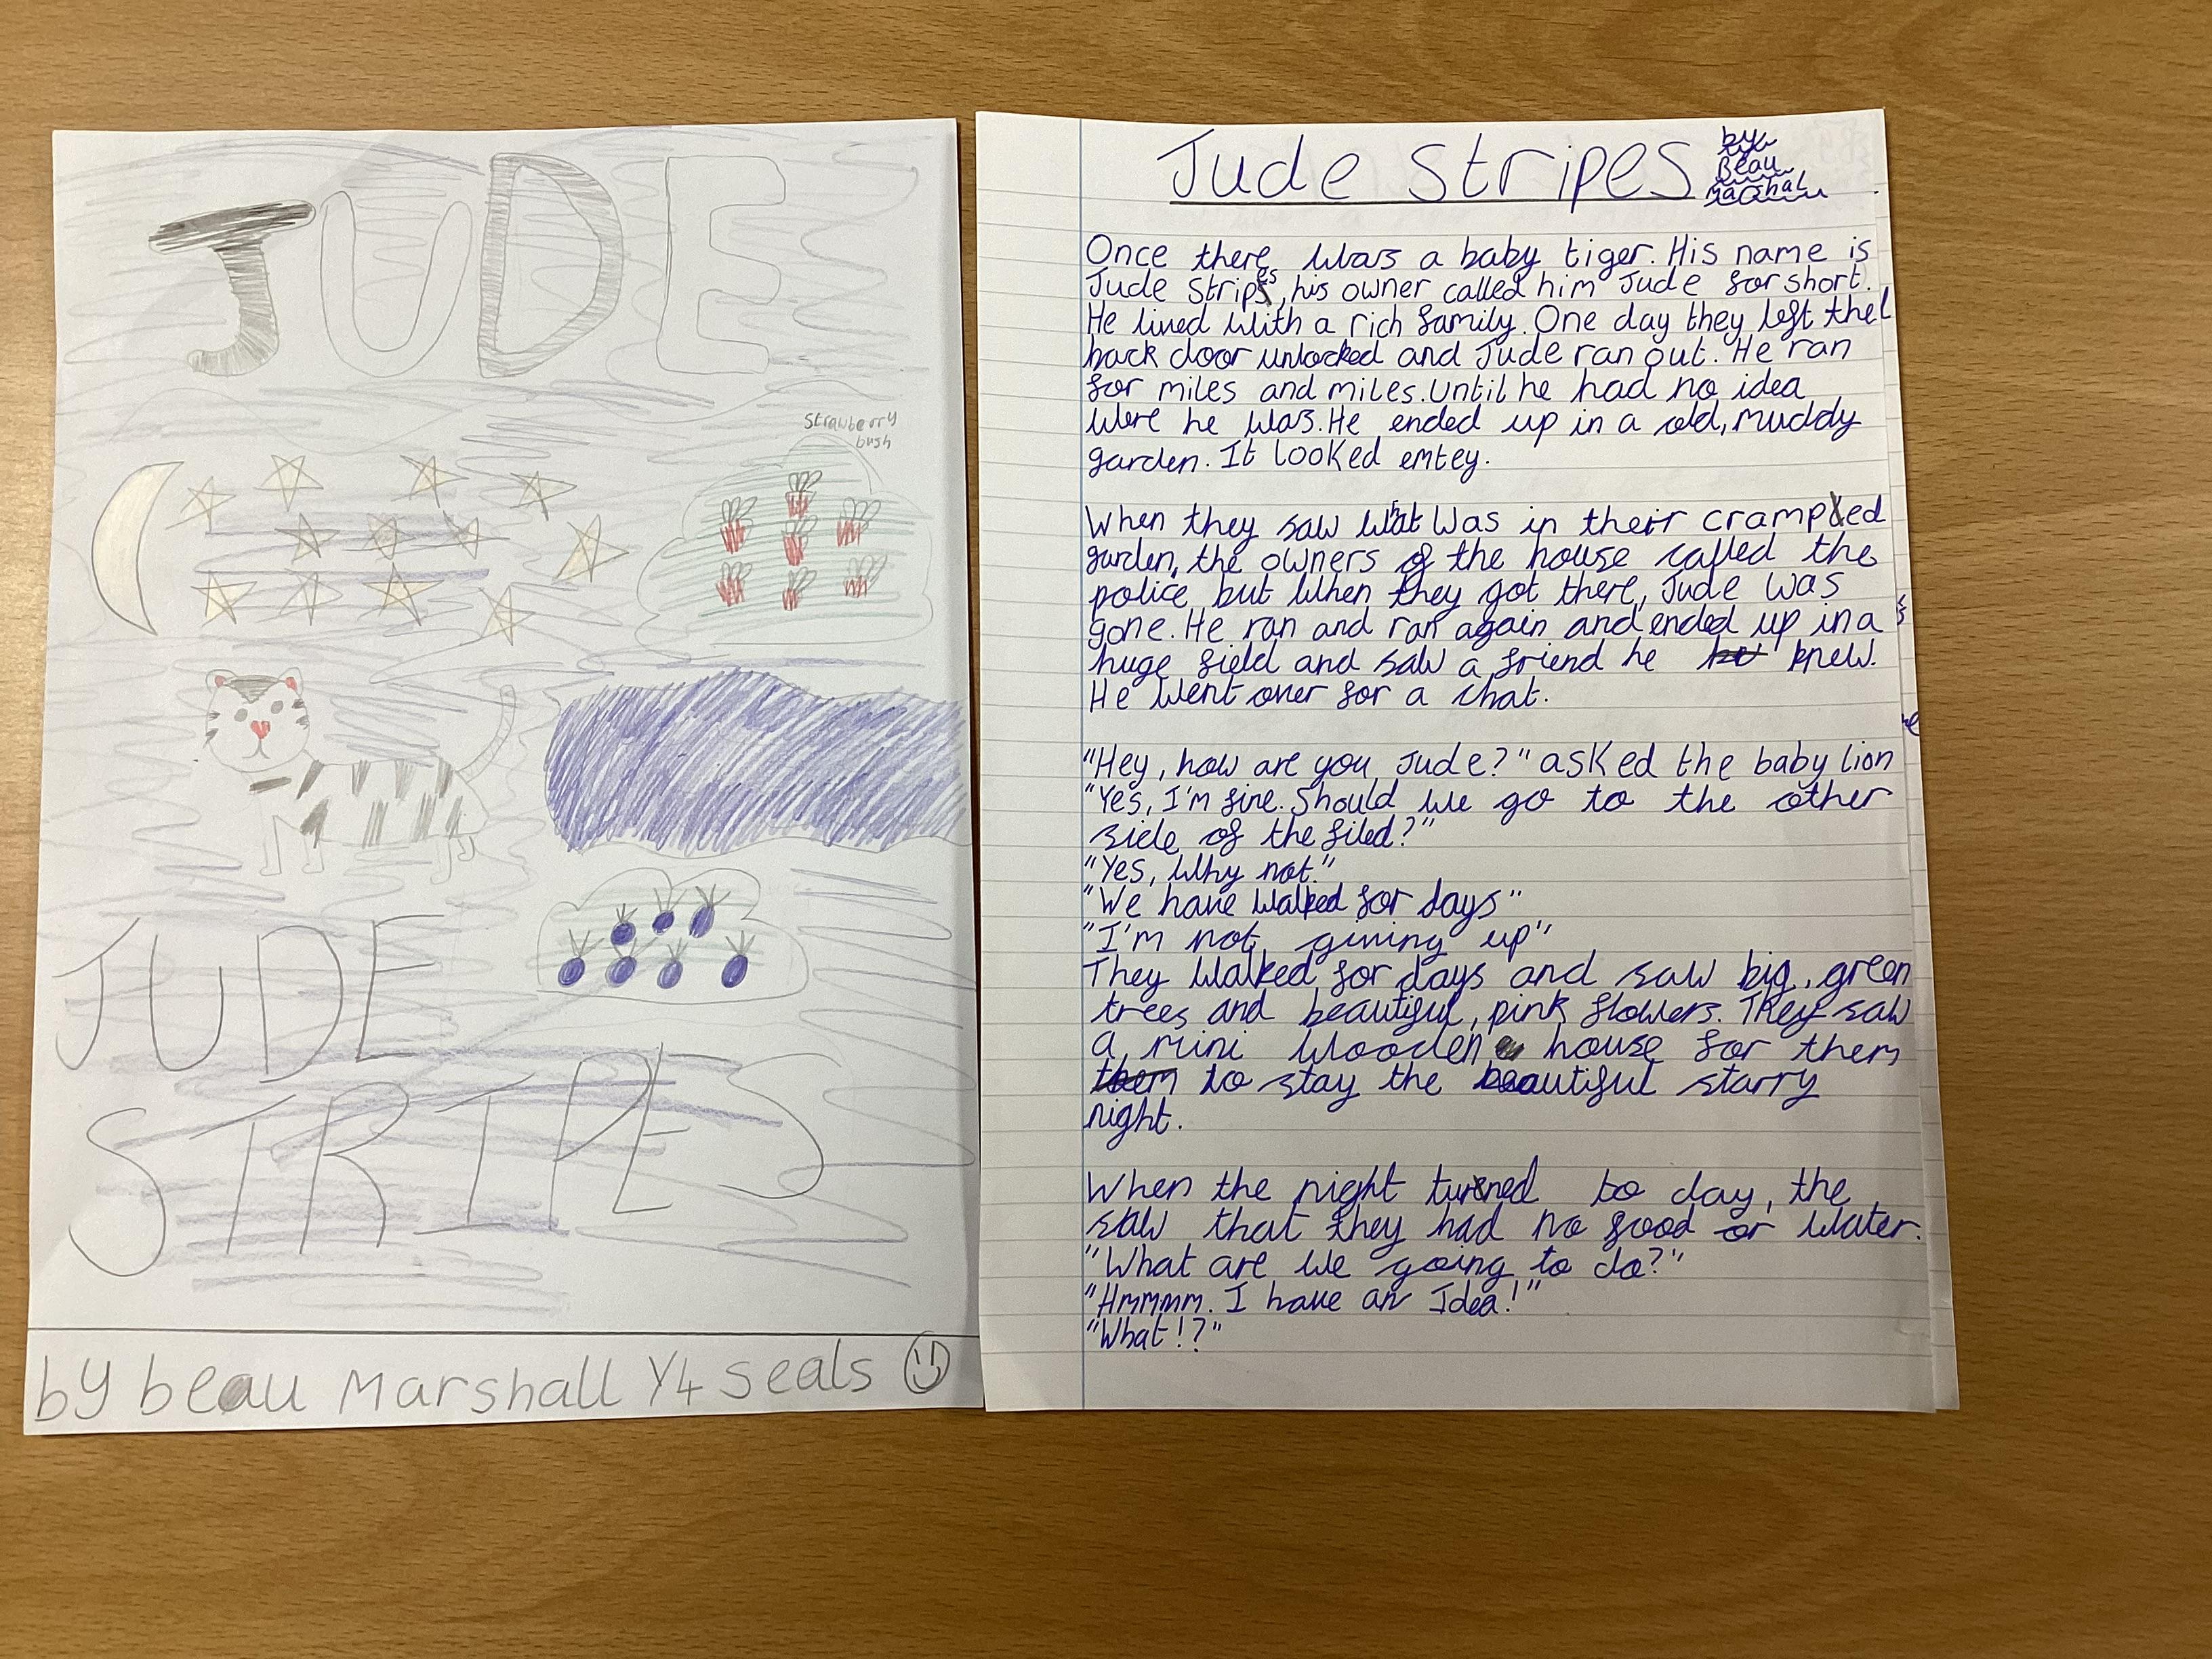 JUDE
Strawberry
bush
JUDE
STRIPES
by beau Marshall Y4 Seals
Jude Stripes
by
Beau
Marshal
Once there was a baby tiger. His name is
Jude Stripes, his owner called him Jude for short.
He lived with a rich family. One day they left the
back door unlocked and Jude ran out. He ran
for miles and miles. Until he had no idea
were he was. He ended up in a old, muddy
garden. It looked emtey.
When they saw what was in their cramped
garden, the owners of the house called the
police but when they got there, Jude was
gone. He ran and ran again and ended up in a
huge field and saw a friend he knew.
He went over for a chat.
"Hey, how are you Jude?" asked the baby lion
"Yes, I'm fine. Should we go to the other
side of the filed?"
"Yes, why not."
"We have walked for days"
"I'm not giving up"
They walked for days and saw big, green
trees and beautiful, pink flowers. They saw
a mini wooden house for them
to stay the beautiful starry
night.
When the night turned to day, the
saw that they had no food or water.
"What are we going to do?"
"Hmmmm. I have an Idea!"
"What!?"